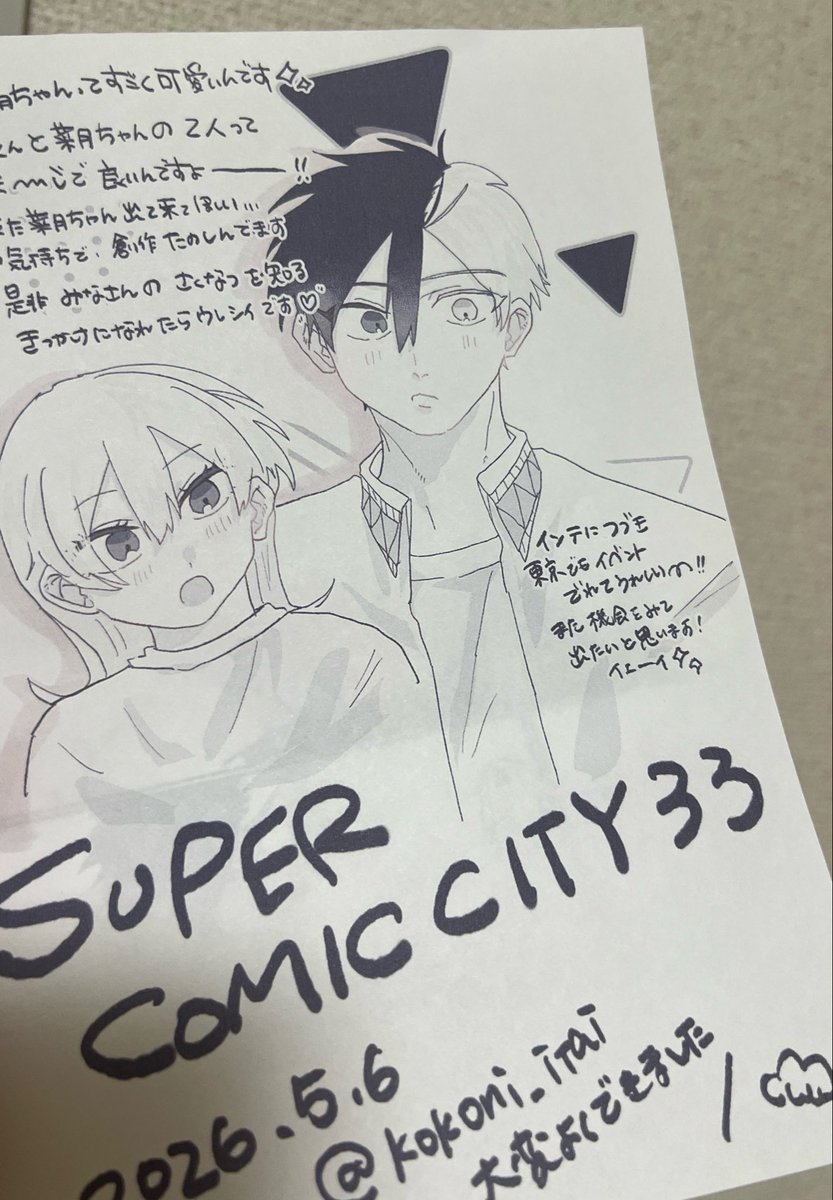 月ちゃんってすごく可愛いんです
くんと菜月ちゃんの2人って
で良いんですよ——!!
また菜月ちゃん出て来てほしい…
気持ちで、創作たのしんでます
是非みなさんのさくなつを知る
きっかけになれたらウレシイです♡
インテにつづき
東京でもイベント
でれてうれしい〜!!
また機会をみて
出たいと思います!
イェーイ
SUPER
COMIC CITY 33
2026.5.6
@kokoni_itai
大変よくできました